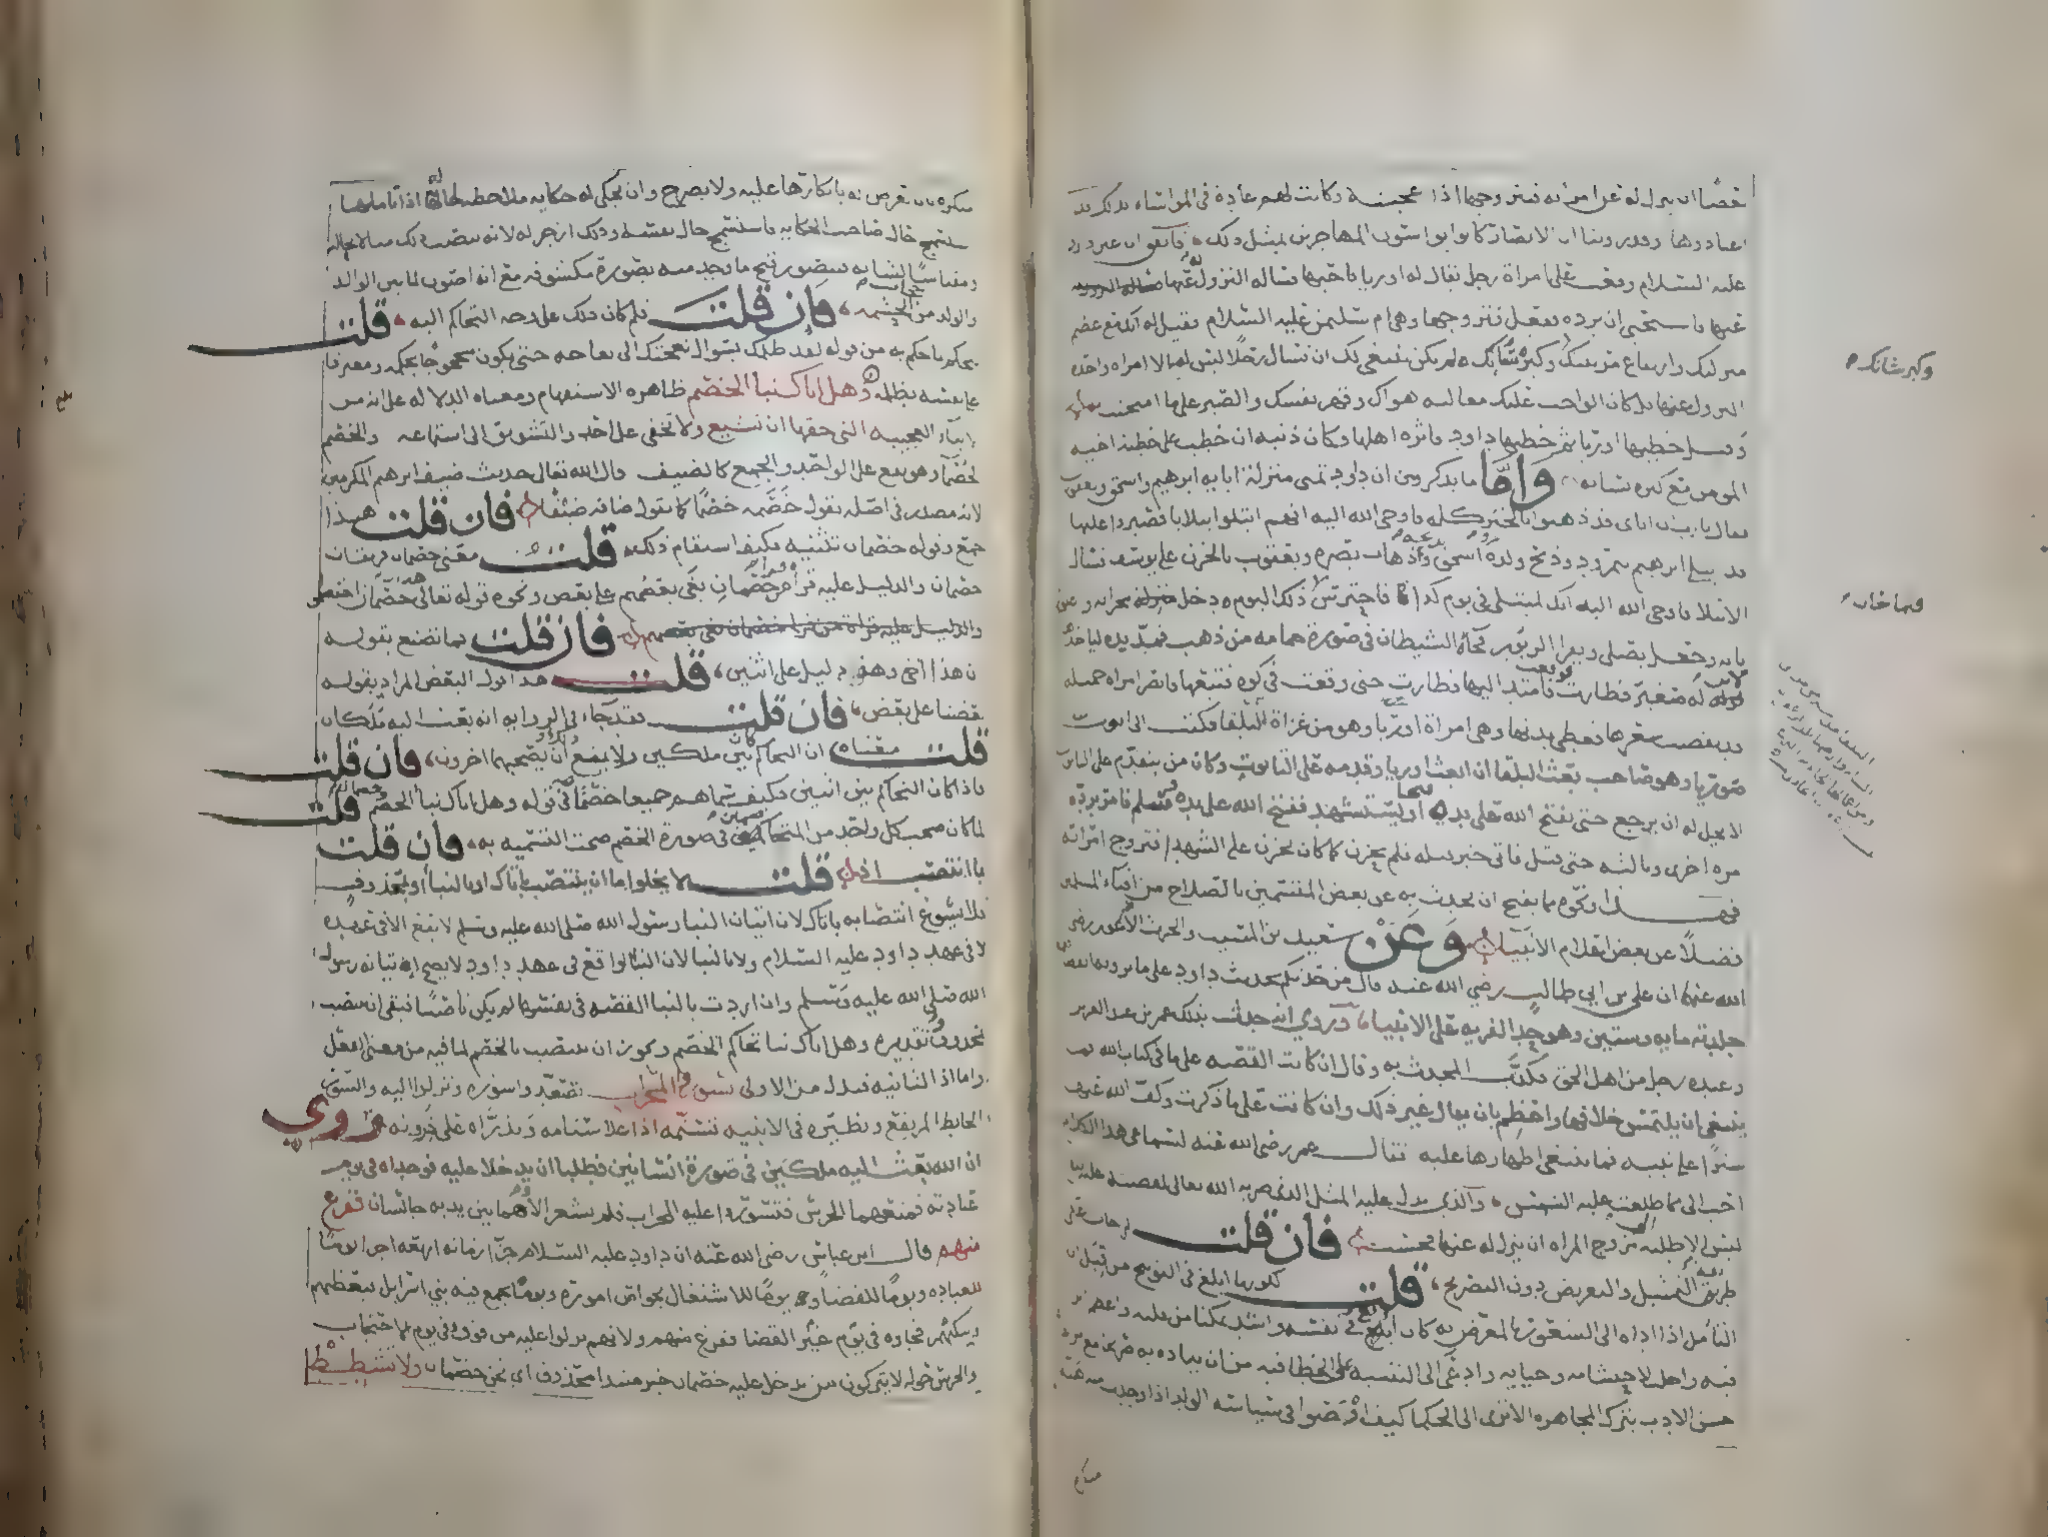 بعضًا ان ينزل له عن امراته فيتزوجها اذا اعجبته وكانت لهم عادة في المواساه بذلك قد
اعتادوها وقد روينا ان الانصار كانوا يواسون المهاجرين بمثل ذلك فاتفق ان عين داود
عليه السلام وقعت على امراة رجل يقال له اوريا فاحبها فساله النزول له عنها
فاستحيى ان يرده ففعل فتزوجها وهي ام سليمن عليه السلام فقيل له انك مع عظم
منزلتك وارتفاع مرتبتك وكبر شانك لم يكن ينبغي لك ان تسال رجلا ليس له الا امراه واحده
النزول عنها بل كان الواجب عليك مغالبه هواك وقهر نفسك والصبر على ما امتحنت به
وقيل خطبها اوريا ثم خطبها داود فاثره اهلها وكان ذنبه ان خطب على خطبة اخيه
المومن مع كثره نسايه واما ما يذكر من ان داود تمنى منزلة ابايه ابرهيم واسحق ويعقوب
فقال يارب ان اباي قد ذهبوا بالخير كله فاوحى الله اليه انهم ابتلوا ببلايا فصبروا عليها
قد ابتلي ابرهيم بنمرود وذبح ولده واسحق بذبحه وذهاب بصره ويعقوب بالحزن على يوسف فسال
الابتلا فاوحى الله اليه انك لمبتلى في يوم كذا وكذا فاحترس فلما حان ذلك اليوم دخل محرابه وغلق
بابه وجعل يصلي ويقرا الزبور فجاه الشيطان في صورة حمامه من ذهب فمد يده لياخذها
لابن له صغير فطارت فامتد اليها فطارت حتى وقعت في كوه فتبعها فابصر امراه جميله
قد نقضت شعرها فغطى بدنها وهي امراة اوريا وهو من غزاة البلقا فكتب الى ايوب
صوريا وهو صاحب بعث البلقا ان ابعث اوريا وقدمه على التابوت وكان من يتقدم على التابوت
لا يحل له ان يرجع حتى يفتح الله على يديه او يستشهد ففتح الله على يده وسلم فامر برده
مره اخرى وثالثه حتى قتل فاتى خبر قتله فلم يحزن كما كان يحزن على الشهدا وتزوج امراته
فهذا ونحوه مما يقبح ان يحدث به عن بعض المتسمين بالصلاح من افناء المسلمين
فضلا عن بعض اعلام الانبياء وعن سعيد بن المسيب والحرث الاعور رضي
الله عنهما ان علي بن ابي طالب رضي الله عنه قال من حدثكم بحديث داود على ما يرويه القصاص
جلدته مايه وستين وهو حد الفريه على الانبياء وروي انه حدث بذلك عمر بن عبد العزيز
وعنده رجل من اهل الحق فكذب المحدث به وقال ان كانت القصه على ما في كتاب الله فما
ينبغي ان يلتمس خلافها واعظم بان يقال غير ذلك وان كانت على ما ذكرت وكف الله عنها
سترًا على نبيه فما ينبغي اظهارها عليه فقال عمر رضي الله عنه لسماعي هذا الكلام
احب الي مما طلعت عليه الشمس والذي يدل عليه المثل الذي ضربه الله تعالى لقصته عليه
ليس الا طلبه الى زوج المراه ان ينزل له عنها فحسب فان قلت لم جات على
طريقه التمثيل والتعريض دون التصريح قلت لكونها ابلغ في التوبيخ من قبل ان
التامل اذا اداه الى الشعور بالمعرض به كان اوقع في نفسه واشد تمكنا من قلبه واعظم اثرا
فيه واجلب لاحتشامه وحيايه وادعى الى التنبه على الخطا فيه من ان يبادره به صريحا مع مراعاة
حسن الادب بترك المجاهره الا ترى الى الحكما كيف اوصوا في سياسة الولد اذا وجدت منه هنة
وكبر شانك
فلما حان
منكره بان يعرض له بانكارها عليه ولا يصرح وان يحكي له حكايه ملاحظه لحاله اذا تاملها
استسمج حال صاحب الحكايه فاستسمج حال نفسه وذلك ازجر له لانه ينصب ذلك مثالا لحاله
ومقياسًا لشانه فيتصور قبح ما وجد منه بصورة مكشوفه مع انه اصون لما بين الوالد
والولد من حجاب الحشمه فان قلت فلم كان ذلك على وجه التحاكم اليه قلت
ليحكم بما حكم به من قوله لقد ظلمك بسوال نعجتك الى نعاجه حتى يكون محجوجا بحكمه ومعترفا
على نفسه بظلمه وهل اتاك نبأ الخصم ظاهره الاستفهام ومعناه الدلاله على انه من
الانباء العجيبه التي حقها ان تشيع ولا تخفى على احد والتشويق الى استماعه والخصم
الخصما وهو يقع على الواحد والجمع كالضيف قال الله تعالى حديث ضيف ابرهيم المكرمين
لانه مصدر في اصله تقول خصمه خصمًا كما تقول ضافه ضيفًا فان قلت هذا
جمع وقوله خصمان تثنيه فكيف استقام ذلك قلت معنى خصمان فريقان
خصمان والدليل عليه قراه من قرا خصمان بغى بعضهم على بعض ونحوه قوله تعالى هذان خصمان اختصموا
فان قلت فما تصنع بقوله
ان هذا اخي وهو دليل على اثنين قلت هذا قول البعض المراد بقوله
بعضنا على بعض فان قلت فقد جاء في الروايه انه بعث اليه ملكان
قلت معناه ان التحاكم كان بين ملكين ولا يمنع ذلك ان يصحبهما اخرون فان قلت
فاذا كان التحاكم بين اثنين فكيف سماهم جميعا خصمًا في قوله وهل اتاك نبأ الخصم قلت
لما كان صحب كل واحد من المتحاكمين في صورة الخصم صحت التسميه به فان قلت
بما انتصب اذ قلت لا يخلوا اما ان ينتصب باتاك او بالنبأ او بمحذوف
فلا يسوغ انتصابه باتاك لان اتيان النبا رسول الله صلى الله عليه وسلم لا يقع الا في عهده
لا في عهد داود عليه السلام ولا بالنبا لان النبأ الواقع في عهد داود لا يصح اتيانه رسول
الله صلى الله عليه وسلم وان اردت بالنبا القصه في نفسها لم يكن ناصبًا فبقي ان ينتصب
بمحذوف وتقديره وهل اتاك نبا تحاكم الخصم ويجوز ان ينتصب بالخصم لما فيه من معنى الفعل
واما اذ الثانيه فبدل من الاولى تسوروا المحراب تصعدوا سوره ونزلوا اليه والسور
الحايط المرتفع ونظيره في الابنيه تسنمه اذا علا سنامه وتذراه علا ذروته روي
ان الله بعث اليه ملكين في صورة انسانين فطلبا ان يدخلا عليه فوجداه في يوم
عبادته فمنعهما الحرس فتسورا عليه المحراب فلم يشعر الا وهما بين يديه جالسان ففزع
منهم قال ابن عباس رضي الله عنه ان داود عليه السلام جزأ زمانه اربعه اجزا يومًا
للعباده ويومًا للقضا ويومًا للاشتغال بخواص اموره ويومًا يجمع فيه بني اسرايل فيعظهم
ويبكيهم فجاوه في يوم غير القضا ففزع منهم ولانهم نزلوا عليه من فوق وفي يوم الاحتجاب
والحرس حوله لا يتركون من يدخل عليه خصمان خبر مبتدا محذوف اي نحن خصمان ولا تشطط